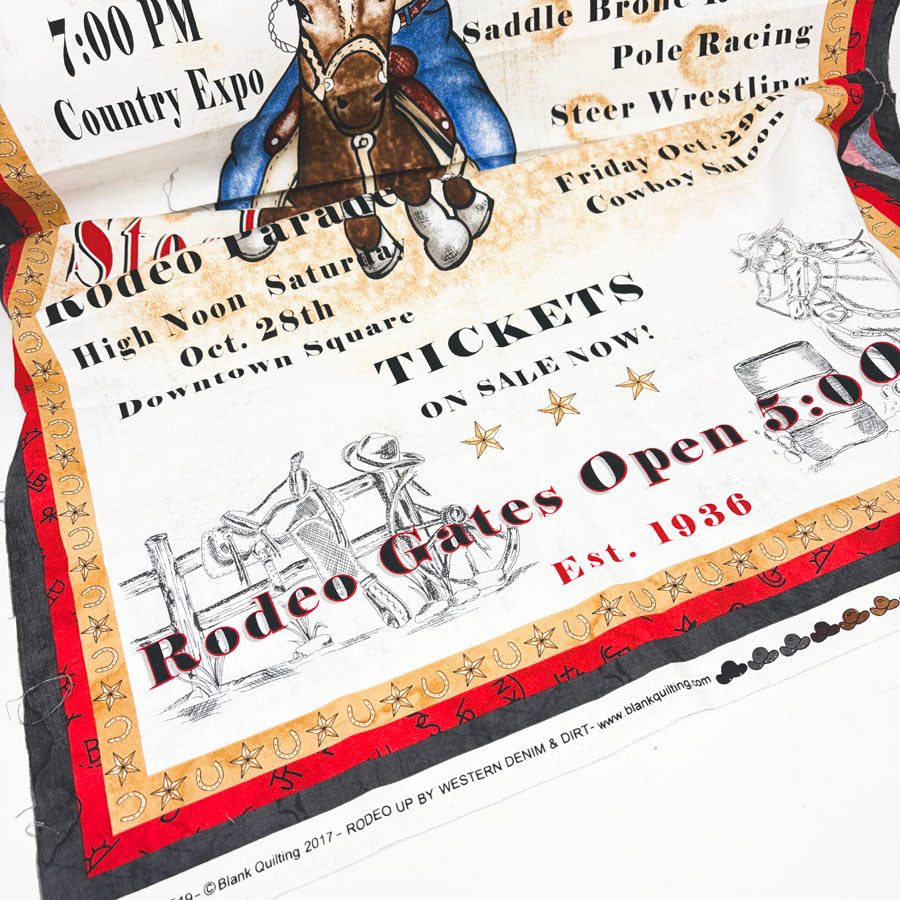 7:00 PM
Country Expo
Saddle Bronc
Pole Racing
Steer Wrestling
Friday Oct. 29th
Cowboy Saloon
Rodeo Parade
High Noon Saturday
Oct. 28th
Downtown Square
TICKETS
ON SALE NOW!
Rodeo Gates Open 5:00
Est. 1936
© Blank Quilting 2017 - RODEO UP BY WESTERN DENIM & DIRT - www.blankquilting.com